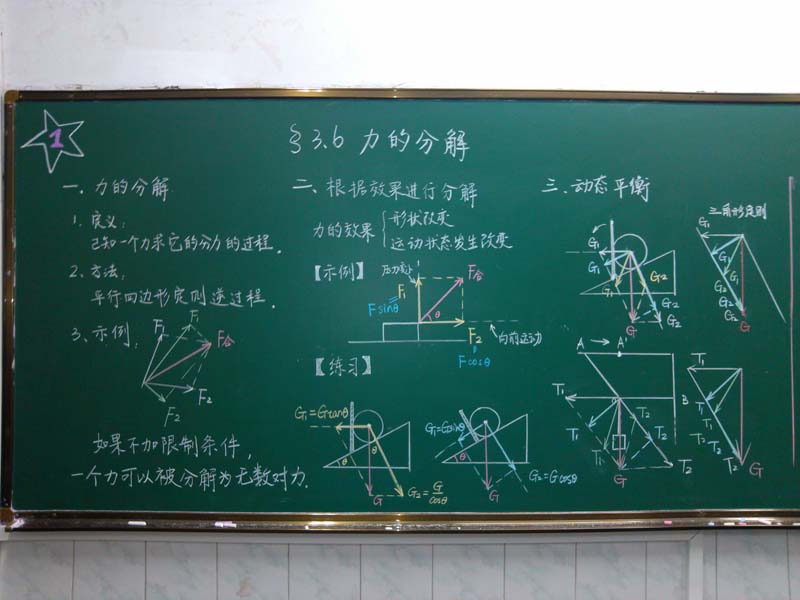 1
§3.6 力的分解
一、力的分解
1、定义：
已知一个力求它的分力的过程．
2、方法：
平行四边形定则逆过程．
3、示例：
F₁
F₁
F合
F₂
F₂
如果不加限制条件，
一个力可以被分解为无数对力．
二、根据效果进行分解
力的效果
形状改变
运动状态发生改变
【示例】
F₁
F合
Fsinθ
θ
F₂
向前运动
Fcosθ
【练习】
G₁=Gtanθ
θ
θ
G
G₂=G/cosθ
G₁=Gsinθ
θ
G
G₂=Gcosθ
三、动态平衡
G₁
G₁
G₁
G₂
G₂
G₂
G
三角形定则
G₁
G₁
G₁
G₂
G₂
G₂
G
A → A'
B
T₁
T₁
T₁
T₂
T₂
T₂
G
T₁
T₁
T₁
T₂
T₂
T₂
G